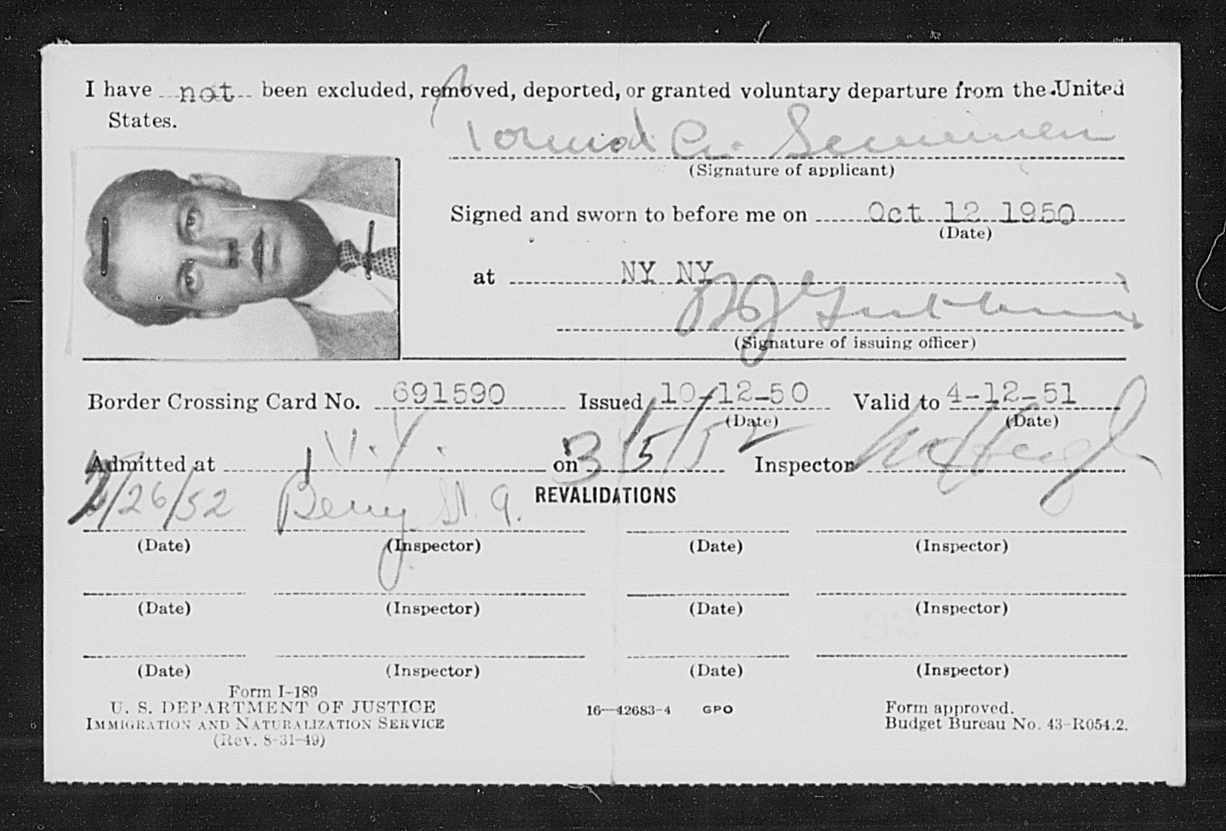 I have not been excluded, removed, deported, or granted voluntary departure from the United
States.
(Signature of applicant)
Signed and sworn to before me on Oct 12 1950
(Date)
at NY NY
(Signature of issuing officer)
Border Crossing Card No. 691590 Issued 10-12-50 Valid to 4-12-51
(Date) (Date)
Admitted at N.Y. on 3/5/52 Inspector
REVALIDATIONS
/26/52
(Date) (Inspector) (Date) (Inspector)
(Date) (Inspector) (Date) (Inspector)
(Date) (Inspector) (Date) (Inspector)
Form I-189
U. S. DEPARTMENT OF JUSTICE
IMMIGRATION AND NATURALIZATION SERVICE
(Rev. 8-31-49)
16—42683-4 GPO
Form approved.
Budget Bureau No. 43-R054.2.